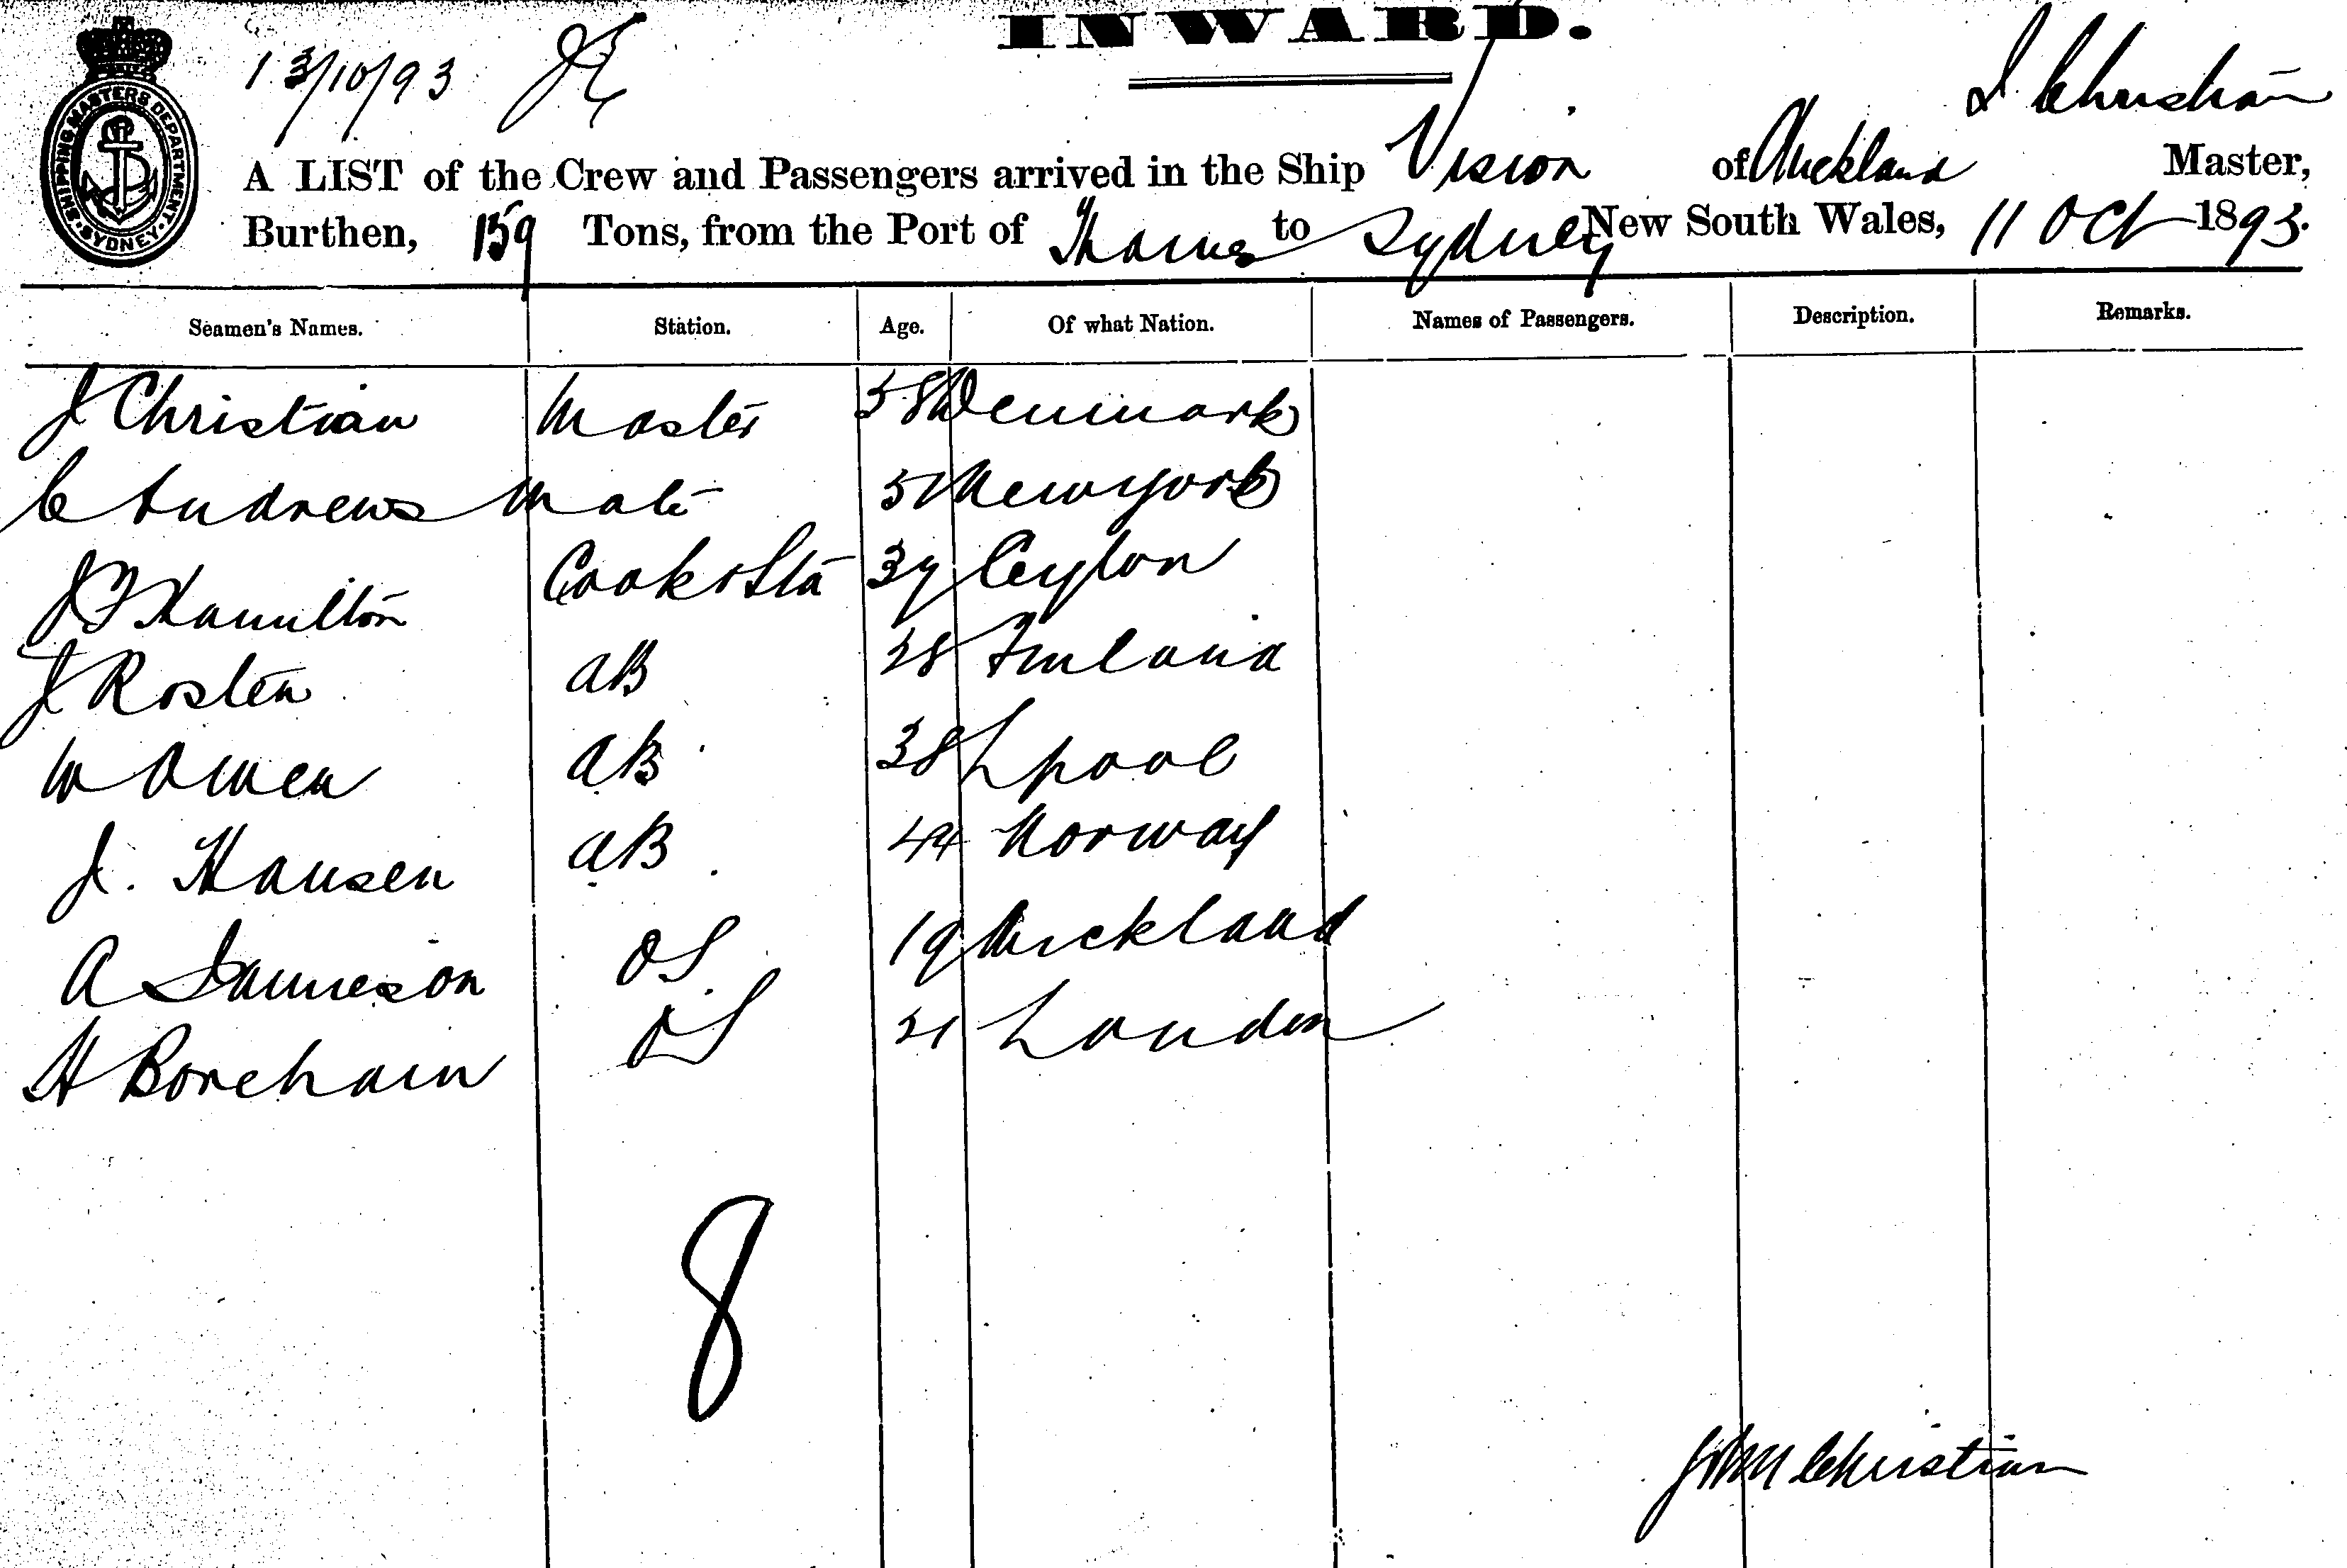 INWARD.
13/10/93 JE
SHIPPING MASTERS DEPARTMENT SYDNEY
J Christian
A LIST of the Crew and Passengers arrived in the Ship Vision of Auckland Master,
Burthen, 159 Tons, from the Port of Thames to Sydney New South Wales, 11 Oct 1893.
Seamen's Names. Station. Age. Of what Nation. Names of Passengers. Description. Remarks.
J Christian Master 58 Denmark
C Andrews Mate New York
J F Hamilton Cook & Std 37 Ceylon
J Rosten AB 28 Finland
W Owen AB 38 Lpool
J. Hansen AB 44 Norway
A Jamieson OS 19 Auckland
H Boreham OS 21 London
8
John Christian